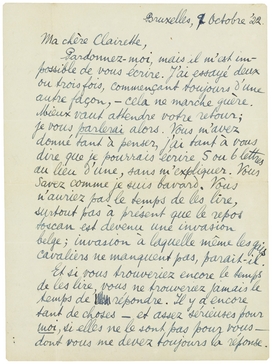 Bruxelles, 7 Octobre '22.
Ma chère Clairette,
Pardonnez-moi, mais il m'est im-
possible de vous écrire. J'ai essayé deux
ou trois fois, commençant toujours d'une
autre façon, – cela ne marche guère.
Mieux vaut attendre votre retour;
je vous parlerai alors. Vous m'avez
donné tant à penser, j'ai tant à vous
dire que je pourrais écrire 5 ou 6 lettres
au lieu d'une, sans m'expliquer. Vous
savez comme je suis bavard. Vous
n'auriez pas le temps de les lire,
surtout pas à présent que le repos
toscan est devenu une invasion
belge; invasion à laquelle même les
cavaliers ne manquent pas, paraît-il.
Et si vous trouveriez encore le temps
de les lire, vous ne trouverez jamais le
temps de répondre. Il y a encore
tant de choses – et assez sérieuses pour
moi, si elles ne le sont pas pour vous –
dont vous me devez toujours la réponse.